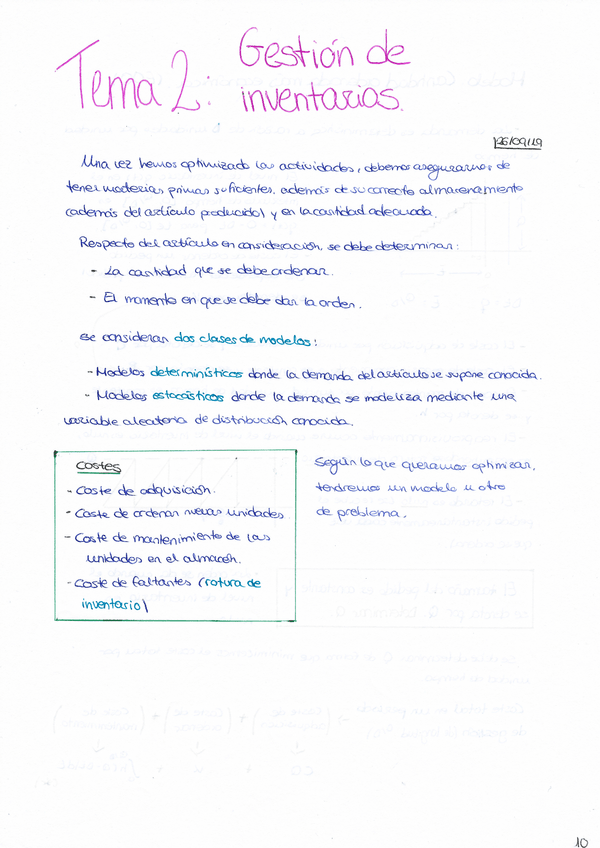 Tema 2: Gestión de
inventarios.
26/09/19
Una vez hemos optimizado las actividades, debemos asegurarnos de
tener materias primas suficientes, además de su correcto almacenamiento
(además del artículo producido) y en la cantidad adecuada.
Respecto del artículo en consideración, se debe determinar:
- La cantidad que se debe ordenar.
- El momento en que se debe dar la orden.
Se consideran dos clases de modelos:
- Modelos determinísticos donde la demanda del artículo se supone conocida.
- Modelos estocásticos donde la demanda se modeliza mediante una
variable aleatoria de distribución conocida.
Costes
- Coste de adquisición.
- Coste de ordenar nuevas unidades
- Coste de mantenimiento de las
unidades en el almacén.
- Coste de faltantes (rotura de
inventario)
Según lo que queramos optimizar,
tendremos un modelo u otro
de problema.
10